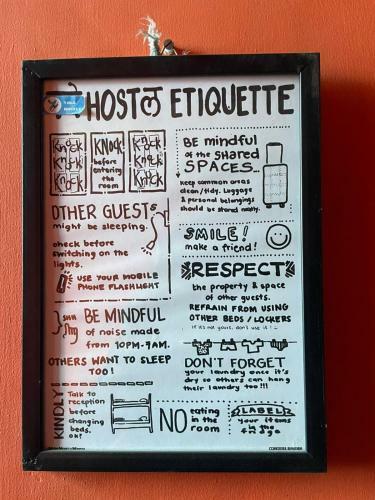 HOSTEL ETIQUETTE
Knock
Knock
Knock
KNOCK
before
entering
the
room
Knock
Knock
Knock
OTHER GUESTS
might be sleeping.
check before
switching on the
lights.
USE YOUR MOBILE
PHONE FLASHLIGHT
BE MINDFUL
of noise made
from 10PM-7AM.
OTHERS WANT TO SLEEP
TOO!
KINDLY
Talk to
reception
before
changing
beds.
OK?
BE mindful
of the SHARED
SPACES...
keep common areas
clean/tidy. Luggage
& personal belongings
should be stored neatly.
SMILE!
make a friend!
RESPECT
the property & space
of other guests.
REFRAIN FROM USING
OTHER BEDS / LOCKERS
if it's not yours, don't use it!
DON'T FORGET
your laundry once it's
dry so others can hang
their laundry too!!!
NO eating
in the
room
LABEL
your items
in the
fridge